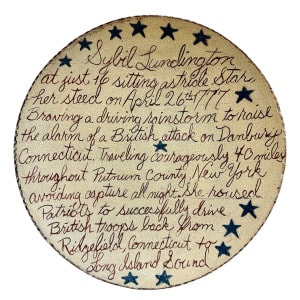 Sybil Ludington
at just 16 sitting astride Star,
her steed on April 26th 1777
Braving a driving rainstorm to raise
the alarm of a British attack on Danbury
Connecticut, traveling courageously 40 miles
throughout Putnum County, New York
avoiding capture all night. She roused
Patriots to successfully drive
British troops back from
Ridgefield, Connecticut to
Long Island Sound